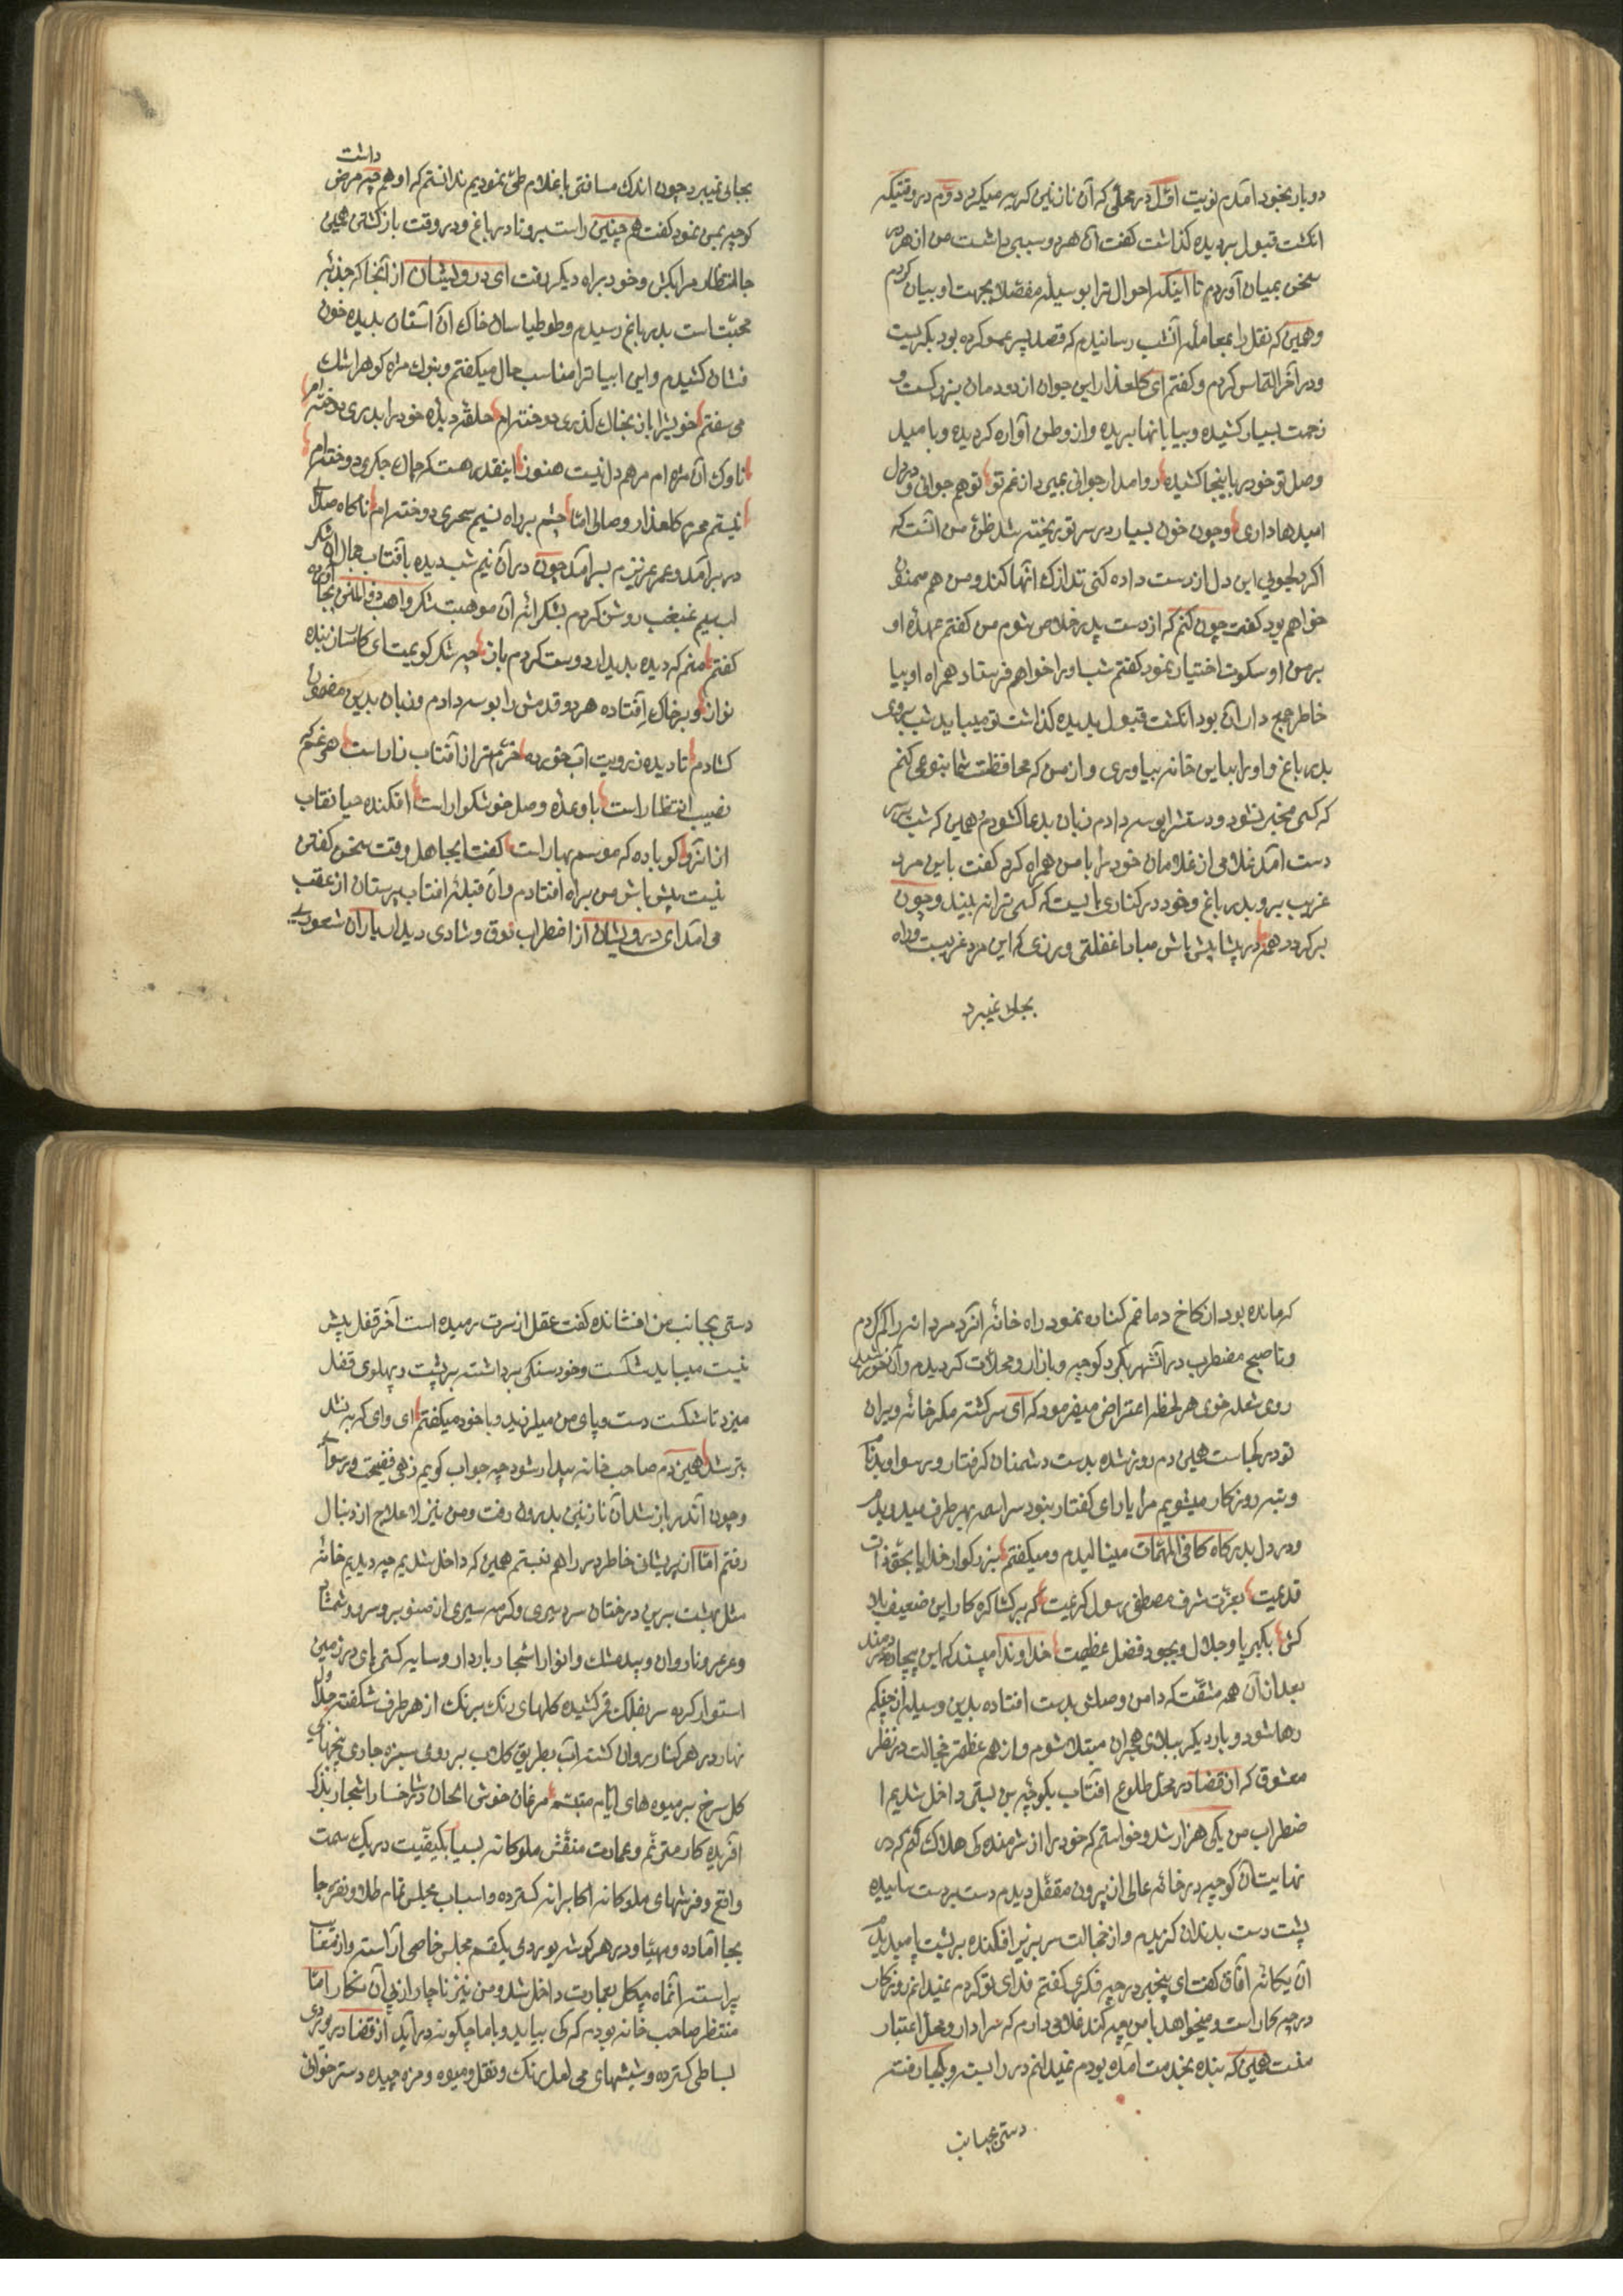 دوبار بخود آمدم نوبت اوّل در محلّی که آن نازنین کریه میکرد دوّم در وقتیکه
انکشت قبول بر دیده کذاشت کفت آن هردو سببی داشت من از هر در
سخن بمیان آوردم تا اینکه احوال ترا بوسیلهٔ مفصّلا بجهت او بیان کردم
و همین که نقل را بمعاملهٔ آنشب رسانیدم که قصد پسر عمو کرده بود بکریست
و در آخر التماس کردم و کفتم ای کلعذار این جوان از دودمان بزرکست و
زحمت بسیار کشیده و بیابانها بریده و از وطن آواره کردیده و بامید
وصل تو خود را باینجا کشیده روا مدار جوانی بمیرد از غم تو تو هم جوانی و در دل
امیدها داری و چون خون بسیار در سر تو ریخته شد ظنّ من آنست که
اکر دلجویی این دل از دست داده کنی تدارک آنها کند و من هم ممنون
خواهم بود کفت چون کنم که از دست پدر خلاص شوم من کفتم عهدهٔ او
بر من او سکوت اختیار نمود کفتم شب او را خواهم فرستاد همراه او بیا
خاطر جمع دار آن بود انکشت قبول بدیده کذاشت تو میباید شب بروی
بدر باغ و او را باین خانه بیاوری و از من که محافظت شما بنوعی کنم
که کسی مخبر نشود و دستش را بوسه دادم زبان بدعا کشودم و همین که شب بر سر
دست آمد غلامی از غلامان خود را با من همراه کرد کفت با این مرد
غریب برو بدر باغ و خود در کناری بایست که کسی ترا نه بیند و چون
برکردد هم در پشاپش باش مبادا غفلتی ورزی که این مرد غریبست و راه
بجای نمیبرد
داشت
بجای نمیبرد چون اندک مسافتی با غلام طیّ نمودیم ندانستم که او هم چه مرض
کوچه بمن نمود کفت هم چنین راست برو تا در باغ و در وقت بازکشتن همین
جا انتظار مرا بکش و خود براه دیکر رفت ای درویشان از آنجا که جذبهٔ
محبّت است بدر باغ رسیدم و طوطیاسان خاک آن آستان بدیده خون
فشان کشیدم و این ابیات را مناسب حال میکفتم و بنوک مژه کوهر اشک
می سفتم خویش را باز بخاک کذری دوخته ام حلقهٔ دیدهٔ خود را بدری دوخته ام
ناوک آن مژه ام مرهم دل نیست هنوز اینقدر هست که چاک جکری دوخته ام
نیستم محرم کلعذار وصالی امّا چشم بر راه نسیم سحری دوخته ام ناکاه صدای
در برآمد و عمر عزیزم بسر آمد چون در آن نیم شب دیده بآفتاب جمال آن شکر
لب سیم غبغب روشن کردم بشکرانهٔ آن موهبت شکر واهب ذو المنن بجا آورده
کفتم منم که دیده بدیدار دوست کردم باز چه شکر کویمت ای کارساز بنده
نواز و بر خاک افتاده هر دو قدمش را بوسه دادم و زبان بدین مضمون
کشادم تا دیده ز رویت آب خورده خرّم تر از آفتاب زار است هر غم که
نصیب انتظار است با وعدهٔ وصل خوشکوار است افکنده حیا نقاب
از آنرو کو باده که موسم بهار است کفت ایجاهل وقت سخن کفتن
نیست پیش باش من براه افتادم و آن قبلهٔ آفتاب پرستان از عقب
می آمد ای درویشان از اضطراب ذوق و شادی دیدار یاران شعوری
که مانده بود از کاخ دماغم کناره نمود راه خانهٔ آنکرد مردانه را کم کردم
و تا صبح مضطرب در آنشهر بکرد کوچه و بازار و محلّات کردیدم و آن خورشید
روی شعله خوی هر لحظه اعتراض میفرمود که ای سر کشته مکر خانه ویران
تو در کجاست همین دم روز شده بدست دشمنان کرفتار و رسوا و بدنام
و تبه روزکار میشویم مرا یارای کفتار نبود سراسمه بهر طرف میدویدم
و در دل بدرکاه کافی المهمّات مینالیدم و میکفتم بزرکوار خدایا بحقّ ذات
قدیمت بعزّت شرف مصطفی رسول کریمت که برکشا کره کار این ضعیف بلا
کش بکبریا و جلال و بجود فضل عظیمت خداوندا مپسند که این بیچاره دردمند
بعد از آن همه مشقّت که دامن وصلش بدست افتاده بدین وسیله از چنکم
رها شود و بار دیکر ببلای هجران مبتلا شوم و از هم عظمتر خجالت در نظر
معشوق که از قضا در محلّ طلوع آفتاب بکوچهٔ بن بستی داخل شدیم ا
ضطراب من یکی هزار شد و خواستم که خود را از شرمندکی هلاک کنم که در
نهایت آن کوچه در خانهٔ عالی از بیرون مقفّل دیدم دست بر دست ساییده
پشت دست بدندان کزیدم و از خجالت سر بزیر افکنده بر پشت پا میدیدم
آن یکانهٔ آفاق کفت ای بیخبر در چه فکری کفتم فدای تو کردم نمیدانم روزکار
در چه کار است و میخواهد با من چه کند غلامی دارم که سرادار و محلّ اعتبار
منست همین که بنده بخدمت آمده بودم نمیدانم در را بسته و بکجا رفته
دستی بجانب
دستی بجانب من افشانده کفت عقل از سرت رمیده است آخر قفل پیش
نیست میباید شکست و خود سنکی برداشته بر پشت و پهلوی قفل
میزد تا شکست دست و پای من میلرزید و با خود میکفتم ای وای که به نشد
بتر شد همین دم صاحب خانه پیدا شود چه جواب کویم زهی فضیحت و رسوایی
و چون آندر باز شد آن نازنین بدرون رفت و من نیز لا علاج از دنبال
رفتم امّا از پریشانی خاطر در را هم نبستم همین که داخل شدیم چه دیدیم خانهٔ
مثل بهشت برین درختان سردسیری و کرمسیری از صنوبر و سرو و شمشاد
و عرعر و نارون و بیدمشک و انواع اشجار باردار و سایه کستر پای در زمین
استوار کرده سر بفلک قمر کشیده کلهای رنک برنک از هر طرف شکفته جداول
نهار در هر کنار روان کشته آب بطریق کلاب بر روی سبزه جاری غنچهای
کل سرخ بر میوه های الوان متبسّم مرغان خوش الحان در شاخسار اشجار بذکر
آفریده کار مترنّم و عمارت منقّش ملوکانه بسیار بکیفیّت در یک سمت
واقع و فرشهای ملوکانه اکابرانه کسترده و اسباب مجلس تمام طلا و نقره جا
بجا آماده و مهیّا و در هر کوشه یوردی یکقسم مجلس خاصی آراسته و از
پیراسته آنماه پیکر بعمارت داخل شد و من نیز ناچار از پی آن نکار امّا
منتظر صاحب خانه بودم که کی بیاید و اما چکونه در آید از قضا در یوردی
بساطی کسترده و شیشهای می لعل رنک و نقل و میوه و مزه چیده دسترخوانی